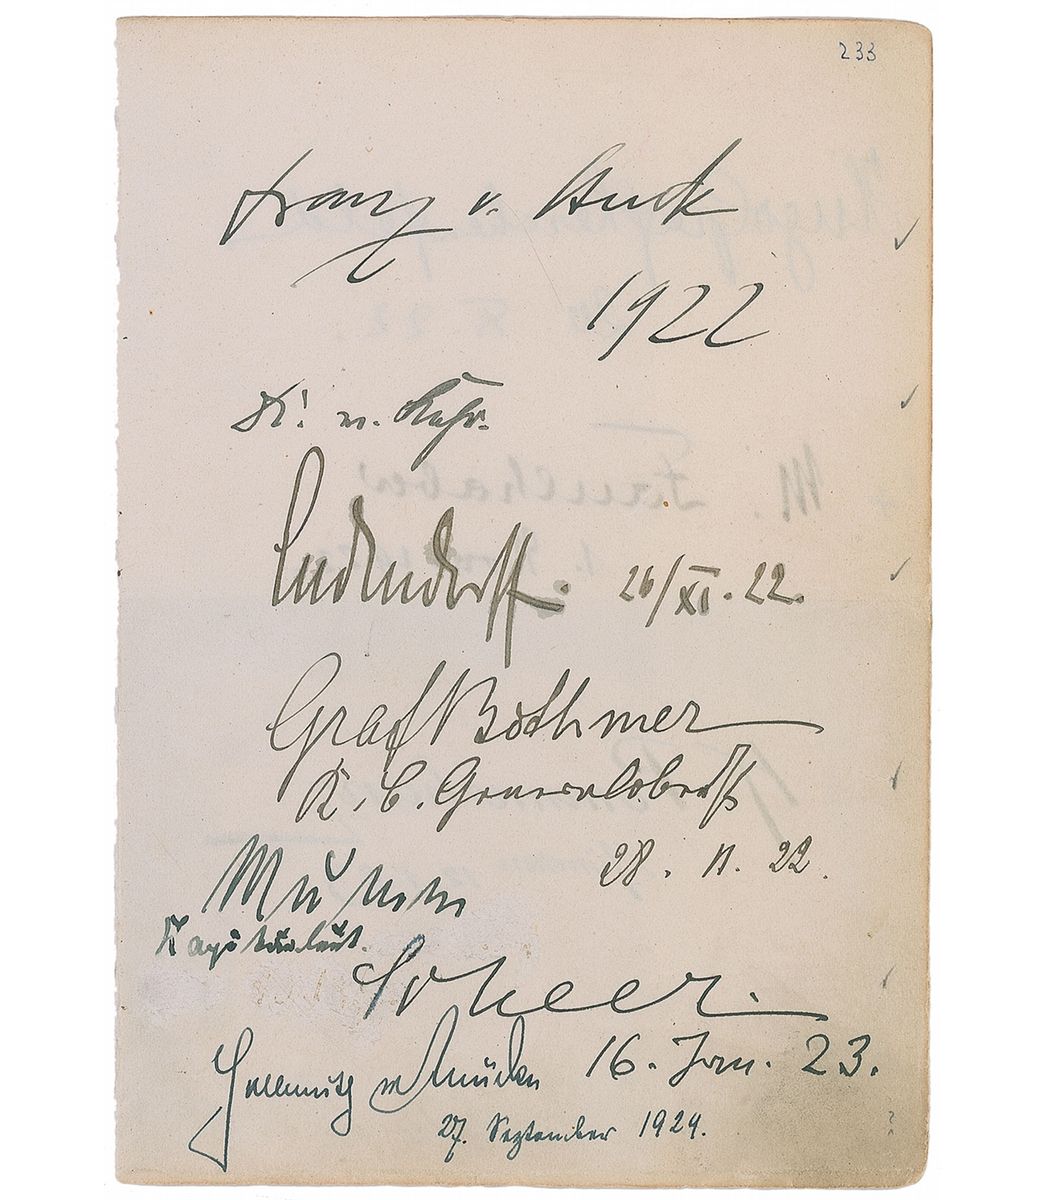 233
Franz v. Stuck
1922
Dr. v. Kahr.
Ludendorff. 26/XI. 22.
Graf Bothmer
K. B. Generaloberst
28. 11. 22.
Mumm
Kapitänleut.
Scheer.
16. Jan. 23.
Hellmuth v Mücke
27. September 1924.